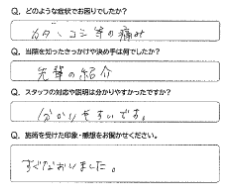 Q、どのような症状でお困りでしたか？
カタ、コシ等の痛み
Q、当院を知ったきっかけや決め手は何でしたか？
先輩の紹介
Q、スタッフの対応や説明は分かりやすかったですか？
分かりやすいです。
Q、施術を受けた印象・感想をお聞かせください。
すぐなおしました。